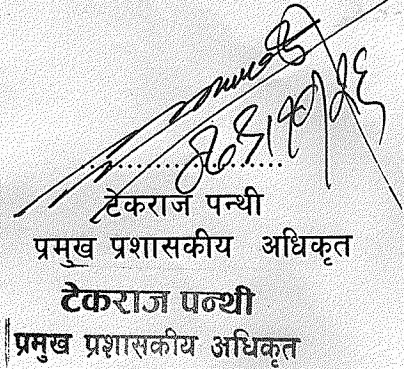 ....................
टेकराज पन्थी
प्रमुख प्रशासकीय अधिकृत
टेकराज पन्थी
प्रमुख प्रशासकीय अधिकृत